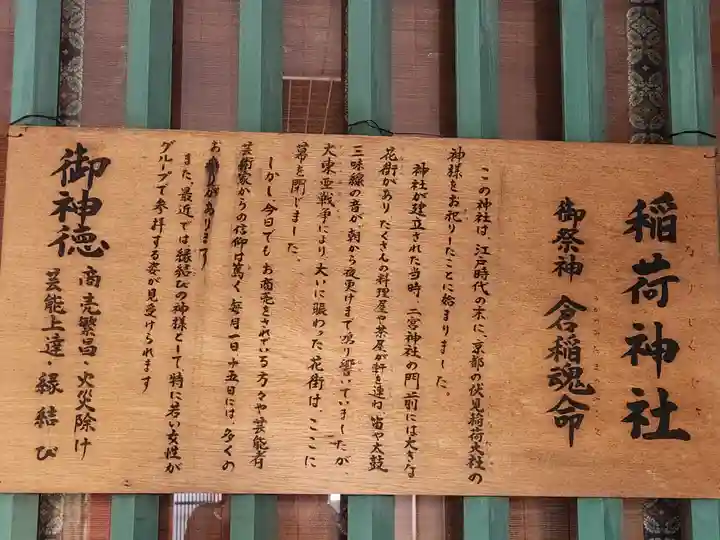 稲荷神社
いなりじんじゃ
御祭神 倉稲魂命
うかのみたまのみこと
この神社は、江戸時代の末に、京都の伏見稲荷大社の
神様をお祀りしたことに始まりました。
神社が建立された当時、二宮神社の門前には大きな
花街があり、たくさんの料理屋や茶屋が軒を連ね、笛や太鼓
三味線の音が、朝から夜更けまで鳴り響いていましたが、
大東亜戦争により、大いに賑わった花街は、ここに
幕を閉じました。
しかし今日でも、お商売をされている方々や芸能者
芸術家からの信仰は篤く、毎月一日十五日には、多くの
お参りがあります
また、最近では縁結びの神様として、特に若い女性が
グループで参拝する姿が見受けられます
御神徳 商売繁昌・火災除け
芸能上達・縁結び